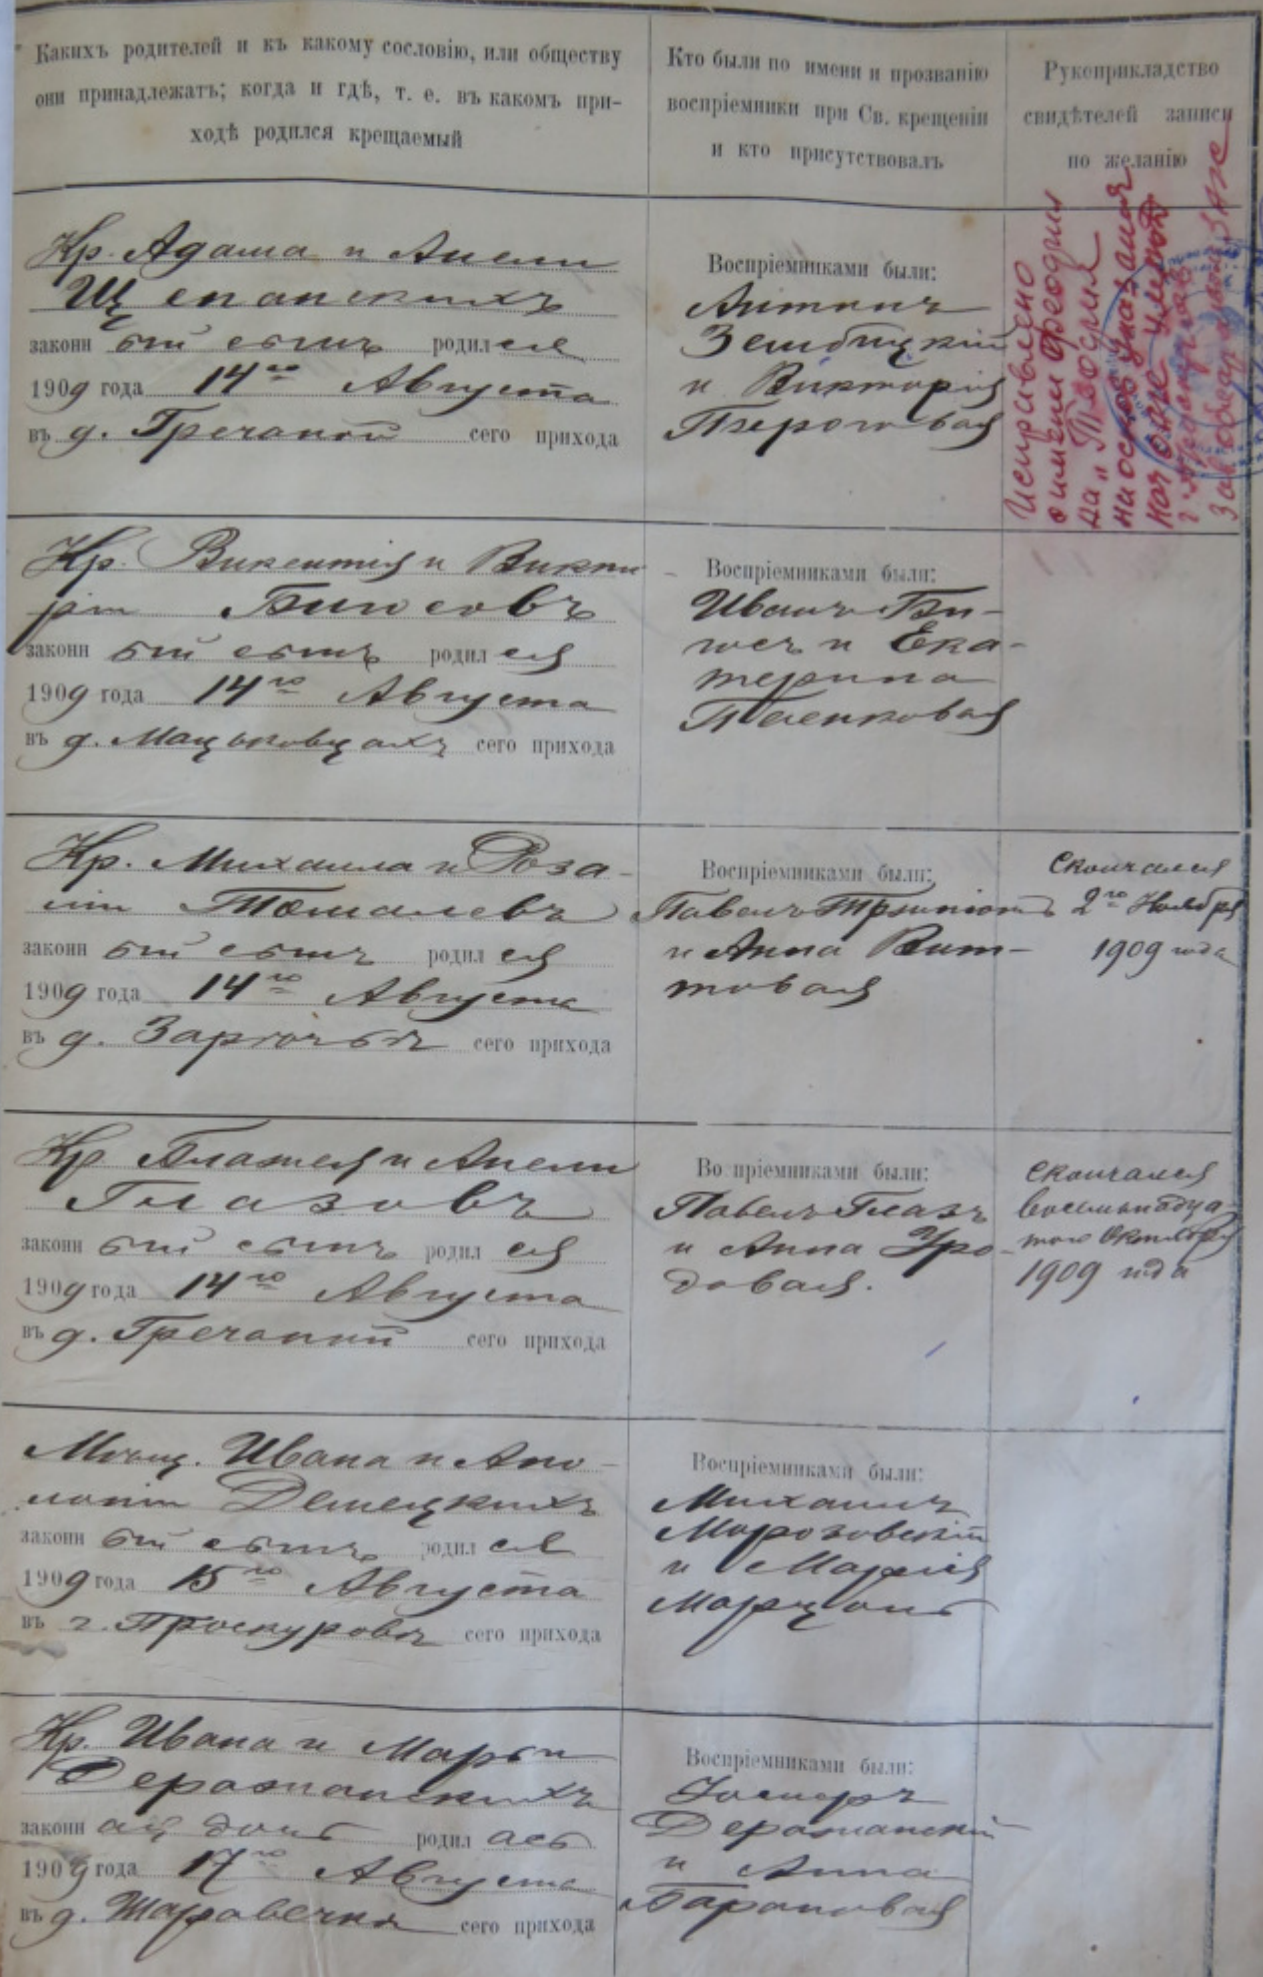 Какихъ родителей и къ какому сословію, или обществу
они принадлежатъ; когда и гдѣ, т. е. въ какомъ при-
ходѣ родился крещаемый
Кто были по имени и прозванію
воспріемники при Св. крещеніи
и кто присутствовалъ
Рукоприкладство
свидѣтелей записи
по желанію
Кр. Адама и Анели
Щепанскихъ
законн ый сынъ родил ся
1909 года 14го Августа
въ д. Гречаной сего прихода
Воспріемниками были:
Антонъ
Зембицкій
и Викторія
Пероговая
Исправлено
Кр. Викентія и Викто
ріи Бигосовъ
законн ый сынъ родил ся
1909 года 14го Августа
въ д. Мацьковцахъ сего прихода
Воспріемниками были:
Иванъ Би-
госъ и Ека-
терина
Кр. Михаила и Роза-
ліи
законн ый сынъ родил ся
1909 года 14го Августа
въ д. Заречьѣ сего прихода
Воспріемниками были:
Павелъ
и Анна Вит-
товая
Скончался
2го Ноября
1909 года
Кр Блажея и Анели
Глазовъ
законн ый сынъ родил ся
1909 года 14го Августа
въ д. Гречаной сего прихода
Во пріемниками были:
Павелъ Глазъ
и Анна Уро-
довая.
Скончался
восемнадца-
того Октября
1909 года
Мѣщ. Ивана и Апо-
лоніи Демецкихъ
законн ый сынъ родил ся
1909 года 15го Августа
въ г. Проскуровѣ сего прихода
Воспріемниками были:
Михаилъ
Морозовскій
и Марія
Марцонь
Кр. Ивана и Марьи
Деражнанскихъ
законн ая дочь родил ась
1909 года 17го Августа
въ д. Шаровечкѣ сего прихода
Воспріемниками были:
Деражнанскій
и Анна
Барановая